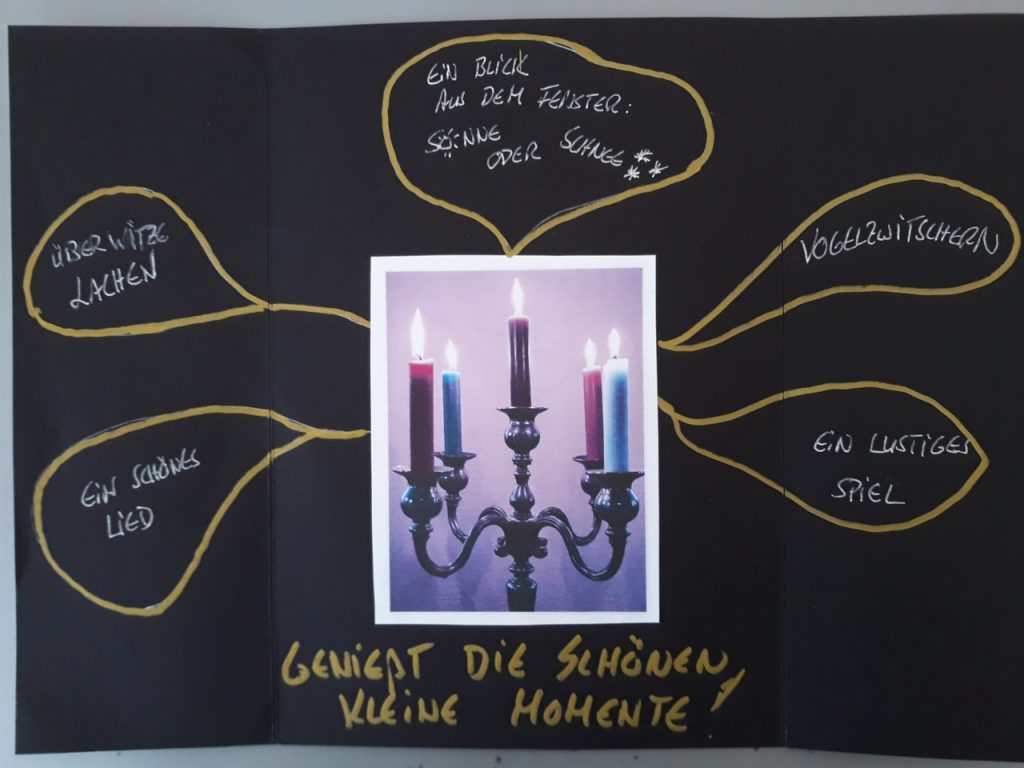 EIN BLICK
AUS DEM FENSTER:
SONNE
ODER SCHNEE
ÜBER WITZE
LACHEN
VOGELZWITSCHERN
EIN SCHÖNES
LIED
EIN LUSTIGES
SPIEL
GENIEßT DIE SCHÖNEN,
KLEINE MOMENTE!